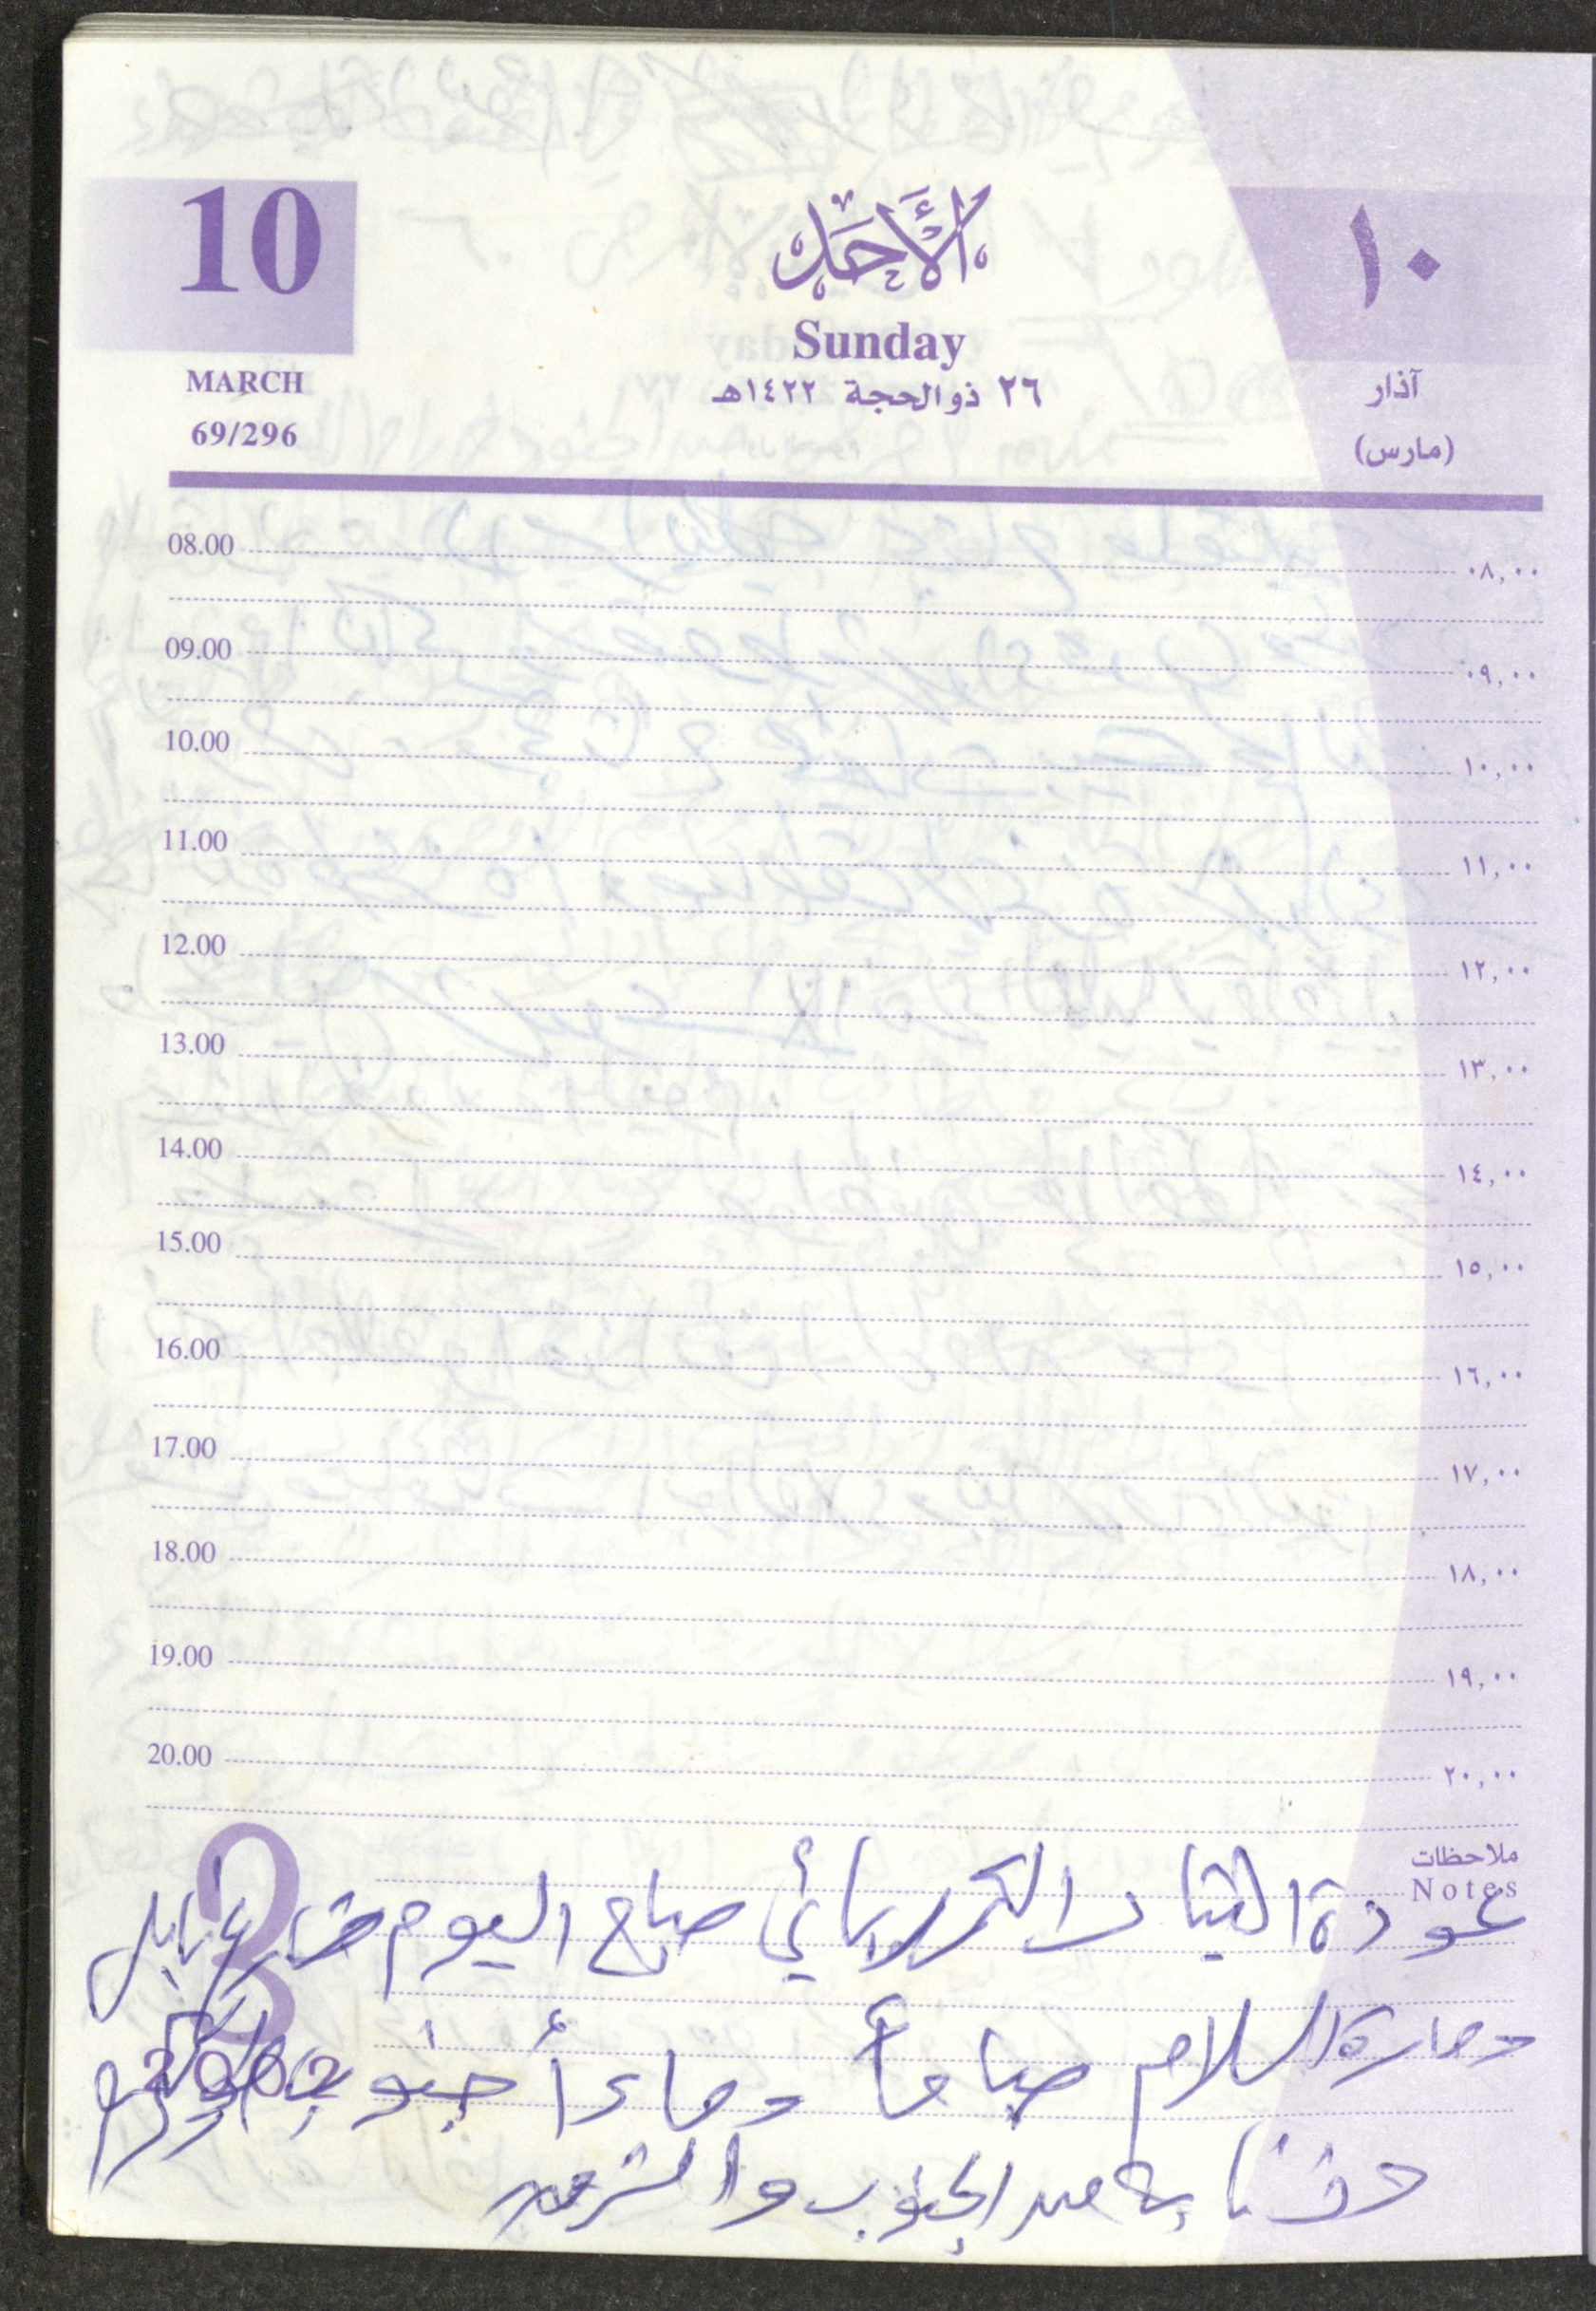 10
MARCH
69/296
الأَحَد
Sunday
٢٦ ذوالحجة ١٤٢٢هـ
١٠
آذار
(مارس)
08.00 ٠٨,٠٠
09.00 ٠٩,٠٠
10.00 ١٠,٠٠
11.00 ١١,٠٠
12.00 ١٢,٠٠
13.00 ١٣,٠٠
14.00 ١٤,٠٠
15.00 ١٥,٠٠
16.00 ١٦,٠٠
17.00 ١٧,٠٠
18.00 ١٨,٠٠
19.00 ١٩,٠٠
20.00 ٢٠,٠٠
ملاحظات
Notes
3
2002
عودة التيار الكهربائي صباح اليوم
السلام صباحاً ومساءاً جنوب
من الجنوب والشرق